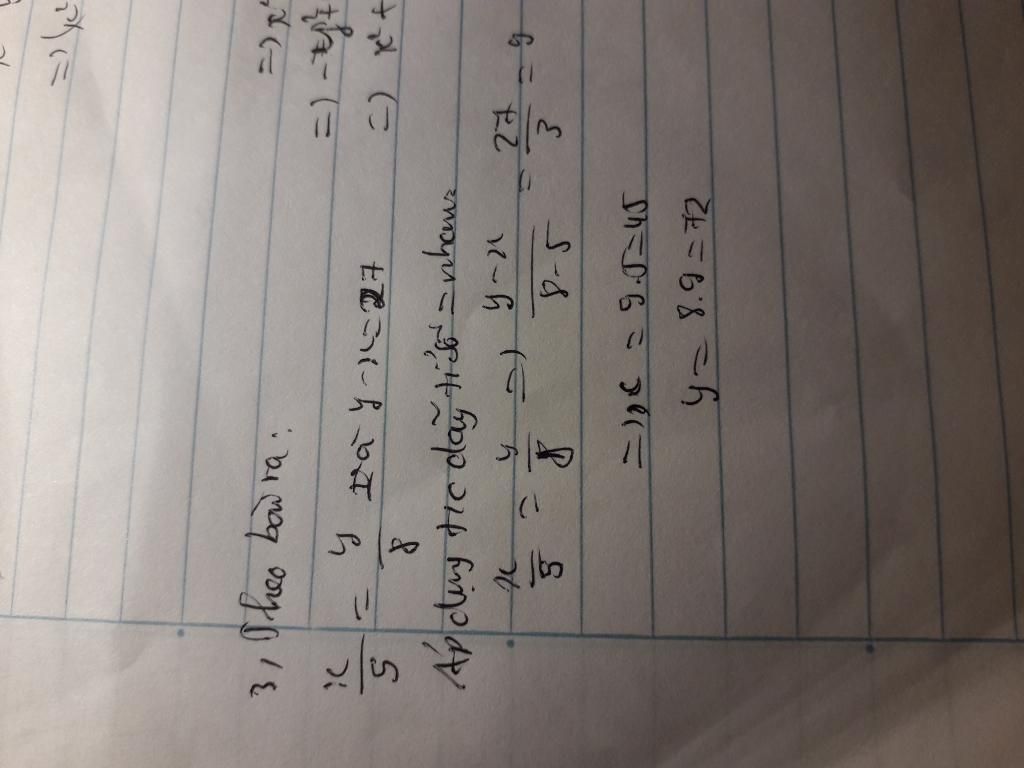 =) (x²
=) x²
=) -7y²
=) x² +
3, Theo bài ra:
x/5 = y/8 và y-x = 27
Áp dụng t/c dãy tỉ số = nhau:
x/5 = y/8 =) y-x/8-5 = 27/3 = 9
=) x = 9.5 = 45
y = 8.9 = 72